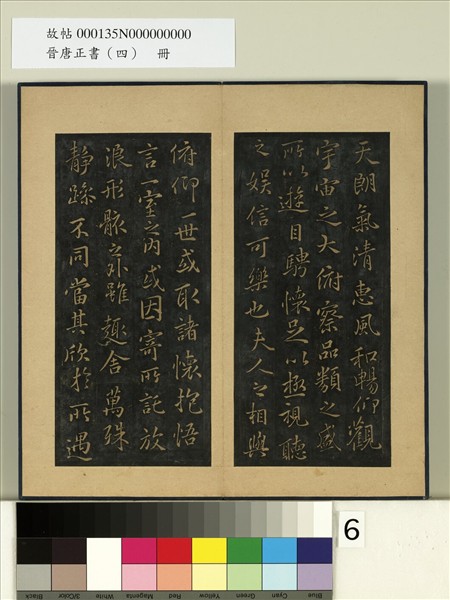 故帖 000135N000000000
晉唐正書（四） 冊
天朗氣清惠風和暢仰觀
宇宙之大俯察品類之盛
所以遊目騁懷足以極視聽
之娛信可樂也夫人之相與
俯仰一世或取諸懷抱悟
言一室之內或因寄所託放
浪形骸之外雖趣舍萬殊
靜躁不同當其欣於所遇
6
Black
3/Color
White
Magenta
Red
Yellow
Green
Cyan
Blue